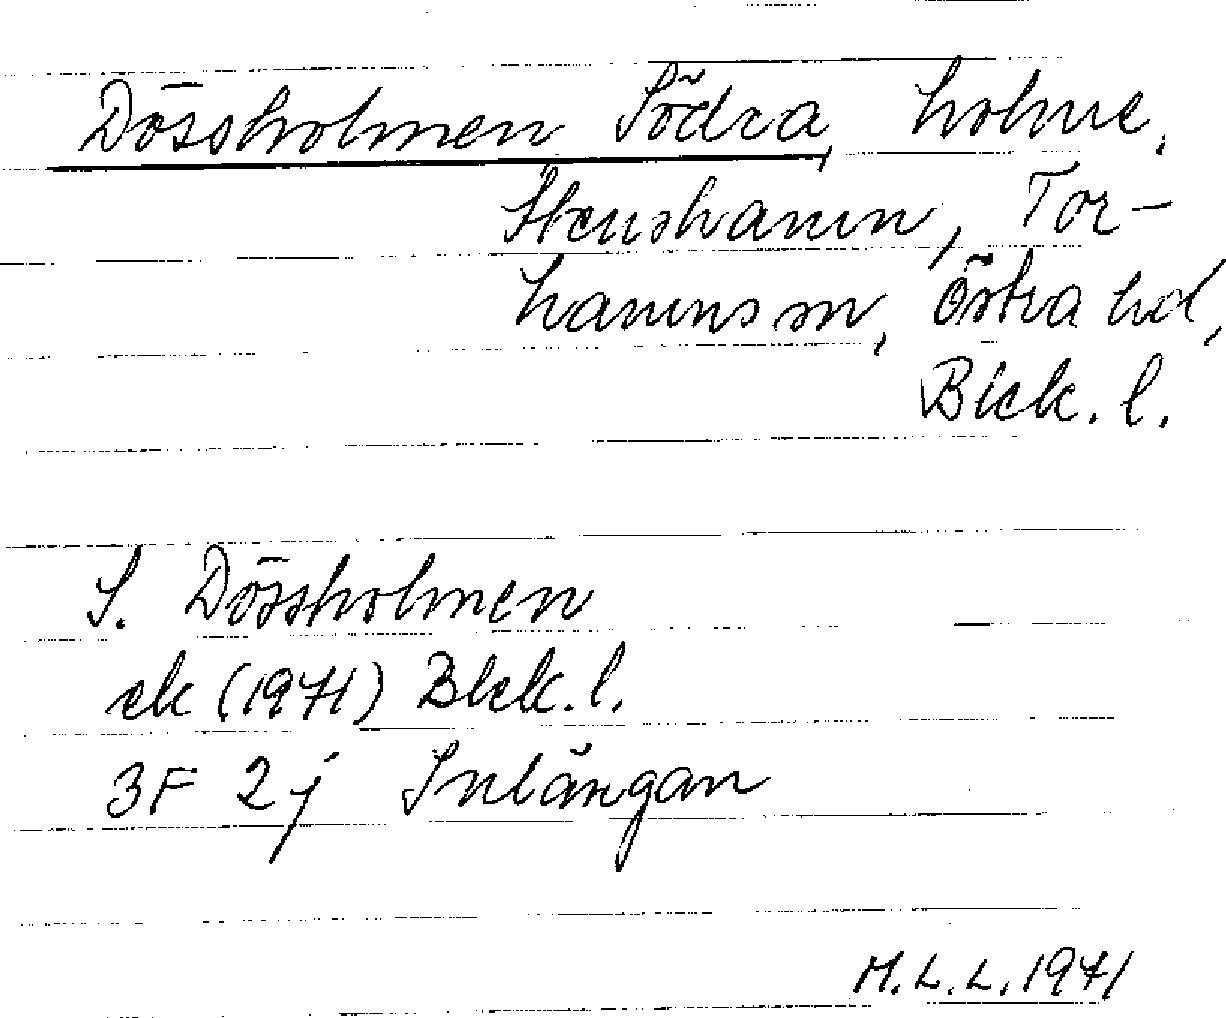 Dössholmen Södra, holme,
Stenshamn, Tor-
hamns sn, Östra hd,
Blek. l.
S. Dössholmen
ek (1971) Blek. l.
3F 2j Inlängan
M.L.L. 1971